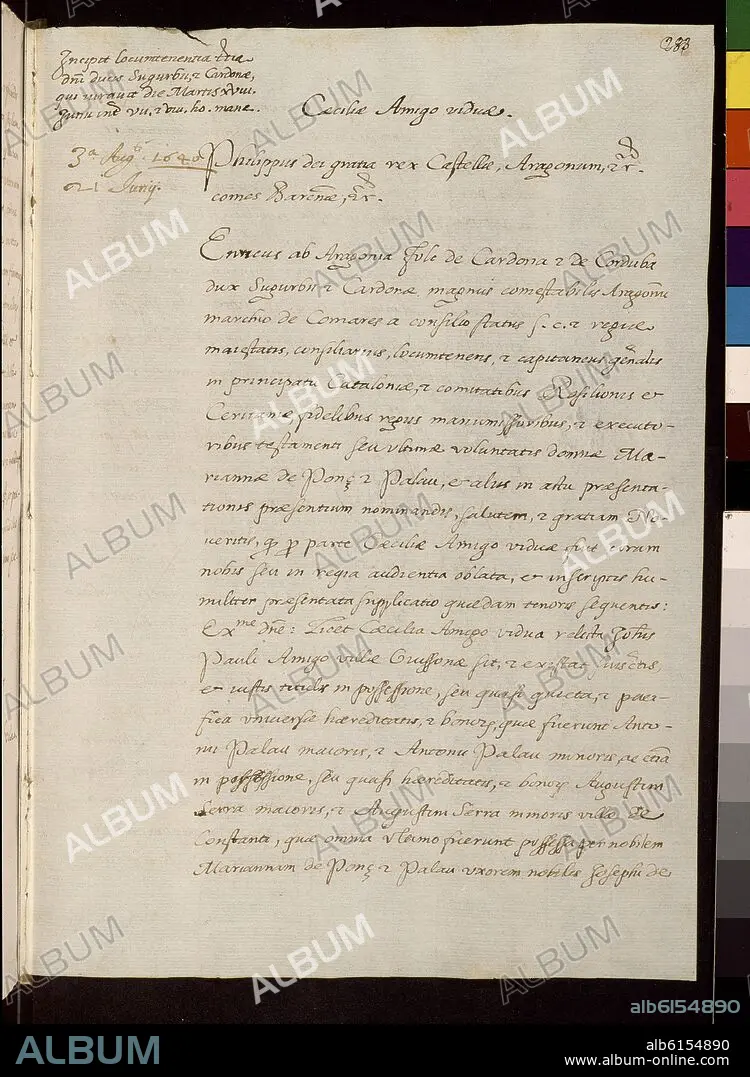 283
Incipit locumtenentia t̄tia
dni ducis Sugurbii, et Cardonæ,
qui iuravit die Martis xviiii.
Junii int̄ vii, et viii, ho. mane.
Ceciliæ Amigo viduæ.
3ᵃ Augᵗⁱ 1640
21 Junii.
Philippus dei gratia rex Castellæ, Aragonum, etc̄.
comes Barcnæ, etc̄.
Enricus ab Aragonia Folc de Cardona et de Corduba
dux Sugurbii et Cardonæ, magnus comestabilis Aragonū
marchio de Comares a consilio status s. c. et regiæ
maiestatis, consiliarius, locumtenens, et capitaneus gēnalis
in principatu Cataloniæ, et comitatibus Rosilionis et
Ceritaniæ fidelibus regiis manumissoribus, et executo-
ribus testamenti seu ultimæ voluntatis domnæ Ma-
riannæ de Ponç et Palau, et aliis in actu præsenta-
tionis præsentium nominandis, salutem, et gratiam No-
veritis, q̄ p̄ parte Cæciliæ Amigo viduæ fuit coram
nobis seu in regia audientia oblata, et inscriptis hu-
militer præsentata supplicatio quædam tenoris sequentis:
Exᵐᵉ dn̄e: Licet Cæcilia Amigo vidua relicta Joh̄is
Pauli Amigo villæ Guissonæ sit, et existat iusīctis,
et iustis titulis in possessione, seu quasi quieta, et paci-
fica universæ hæreditatis, et bonorū, quæ fuerunt Anto-
nii Palau maioris, et Antonii Palau minoris, ac etiā
in possessione, seu quasi hæreditatis, et bonorū Augustini
Serra maioris, et Augustini Serra minoris villæ de
Constanti, quæ omnia ultimo fuerunt possessa per nobilem
Mariannam de Ponç et Palau uxorem nobilis Josephi de
ALBUM
alb6154890
ALBUM
alb6154890
www.album-online.com